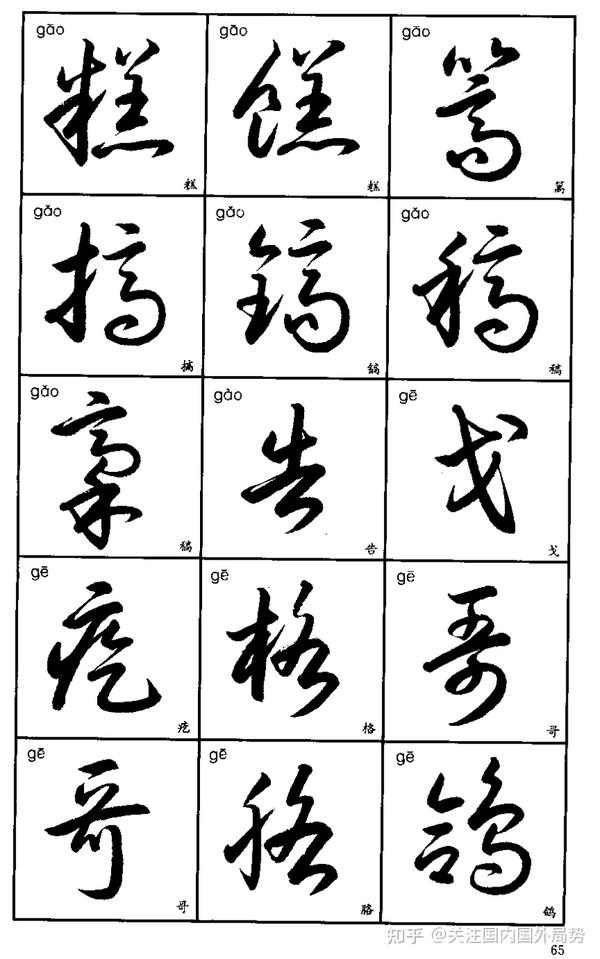 gāo gāo gāo
糕 餻 篙
糕 糕 篙
gǎo gǎo gǎo
搞 镐 稿
搞 镐 稿
gǎo gào gē
稾 告 戈
稿 告 戈
gē gē gē
疙 格 哥
疙 格 哥
gē gē gē
哥 胳 鸽
哥 胳 鸽
知乎 @关注国内国外局势
65